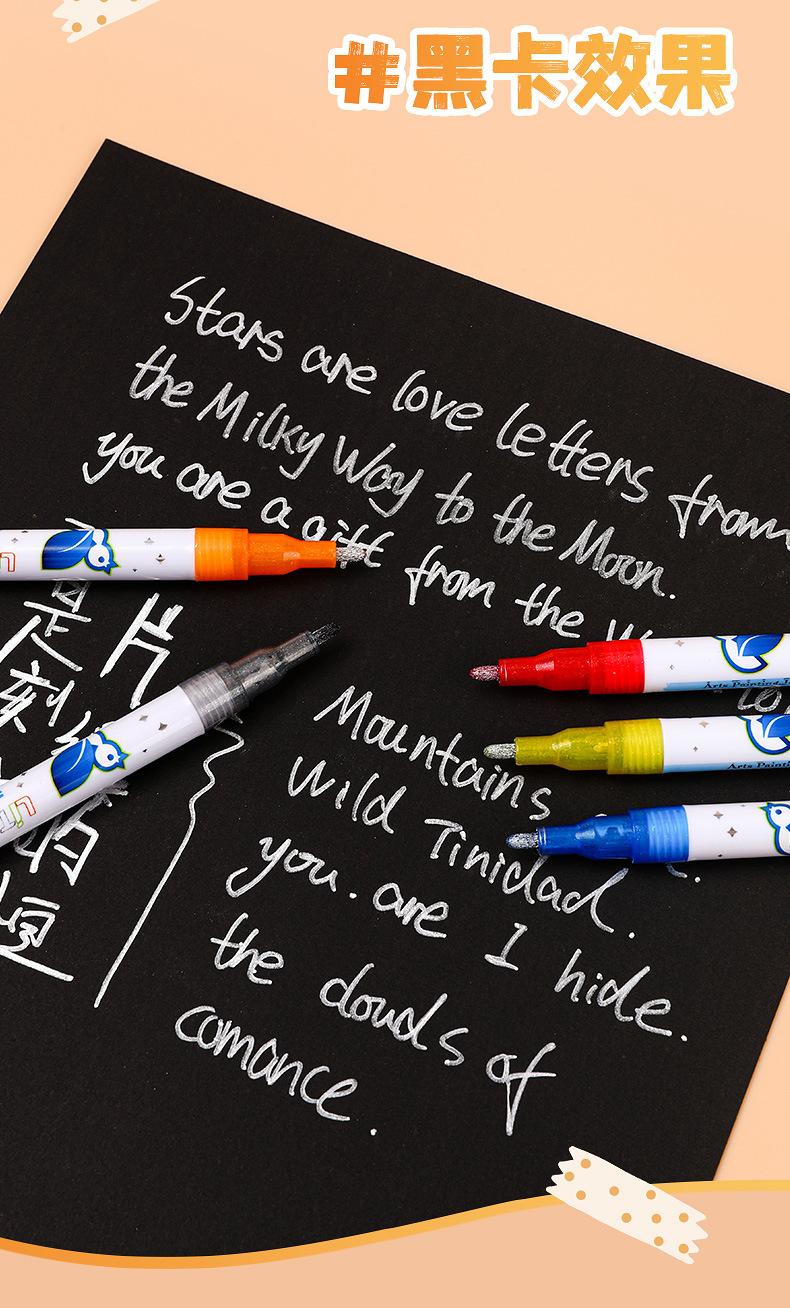 #黑卡效果
Stars are love letters from
the Milky Way to the Moon.
you are a gift from the
Mountains
Wild Tinidad.
you. are I hide.
the clouds of
comance.
是
片
刻
的
恒
Arts Painting
Arts Painti